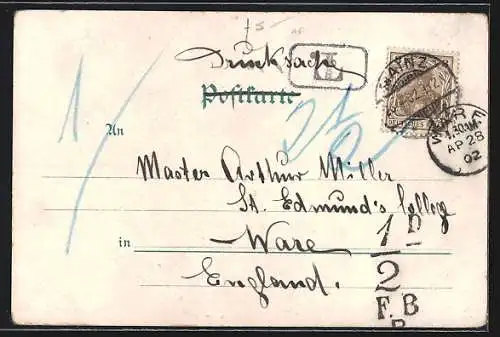 Drucksache
Postkarte
MAINZ
WARE
7.30AM
AP 28
02
An
Master Arthur Miller
St. Edmund's Colleg
in Ware
England.
1D
2
F.B